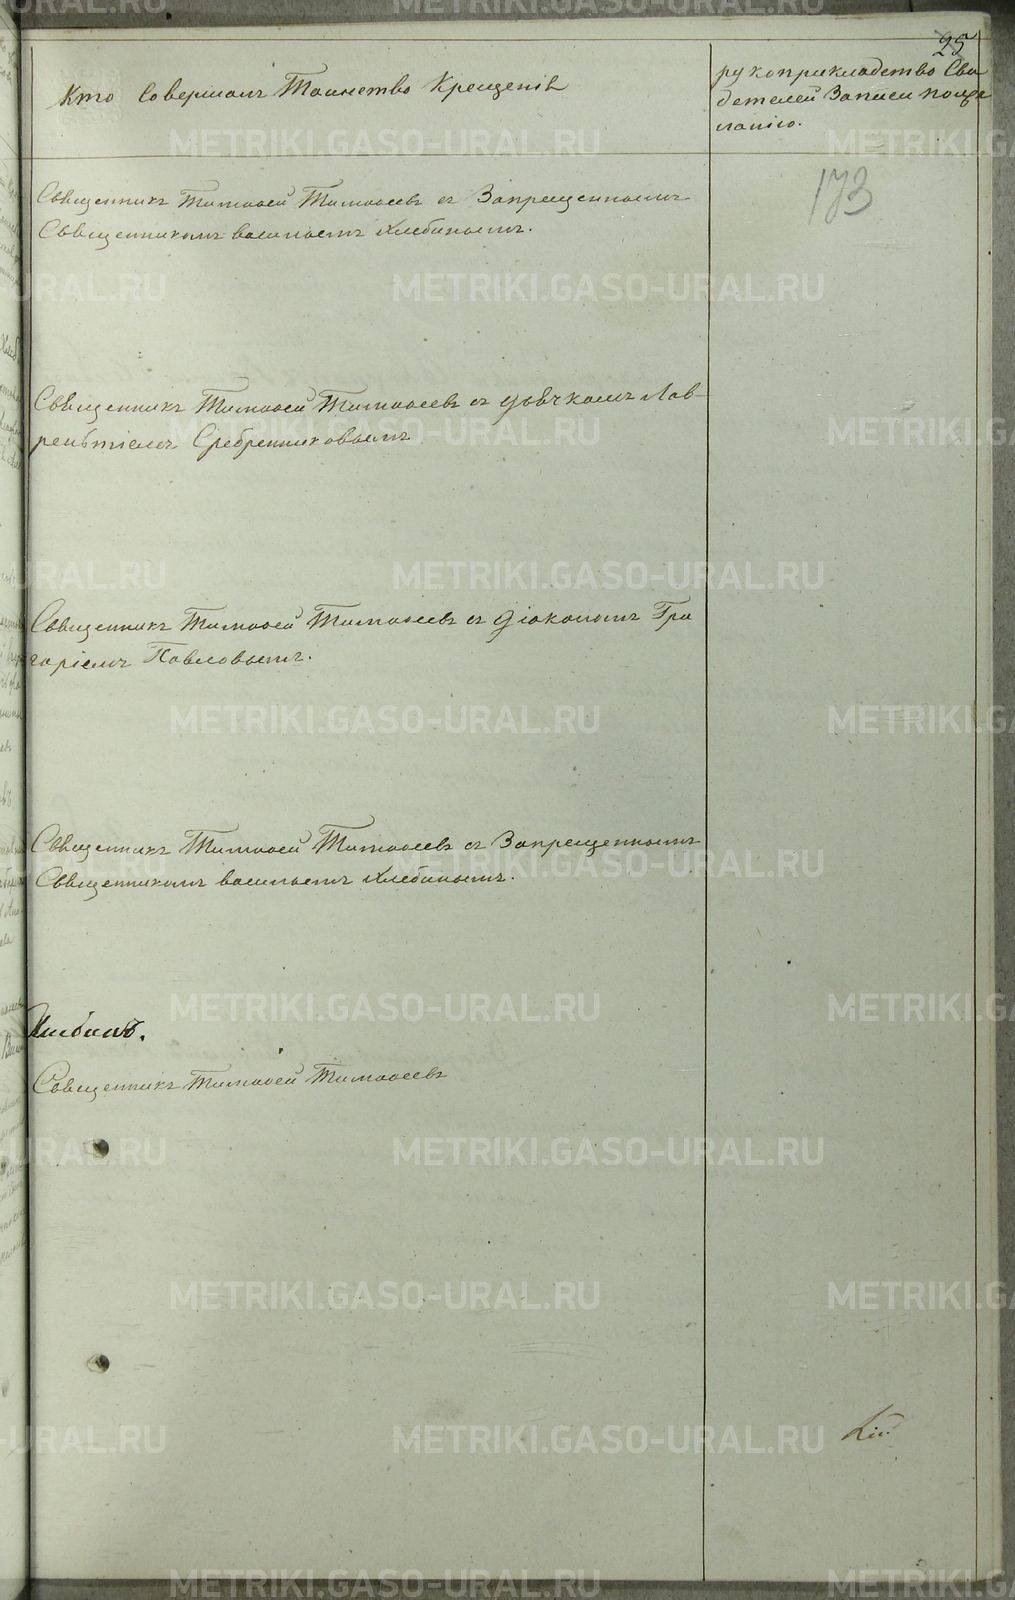 25
Кто Совершалъ Таинство Крещенія
рукоприкладство Сви
детелей Записи по же
ланію.
173
Священникъ Тимофей Тимофеевъ съ Запрещеннымъ
Священникомъ васильемъ Хлебинымъ.
Священникъ Тимофей Тимофеевъ съ дьячкомъ Лав-
рентіемъ Сребренниковымъ
Священникъ Тимофей Тимофеевъ съ діакономъ Гри
горіемъ Павловымъ.
Священникъ Тимофей Тимофеевъ съ Запрещеннымъ
Священникомъ васильемъ Хлебинымъ.
Хлебинъ.
Священникъ Тимофей Тимофеевъ
METRIKI.GASO-URAL.RU